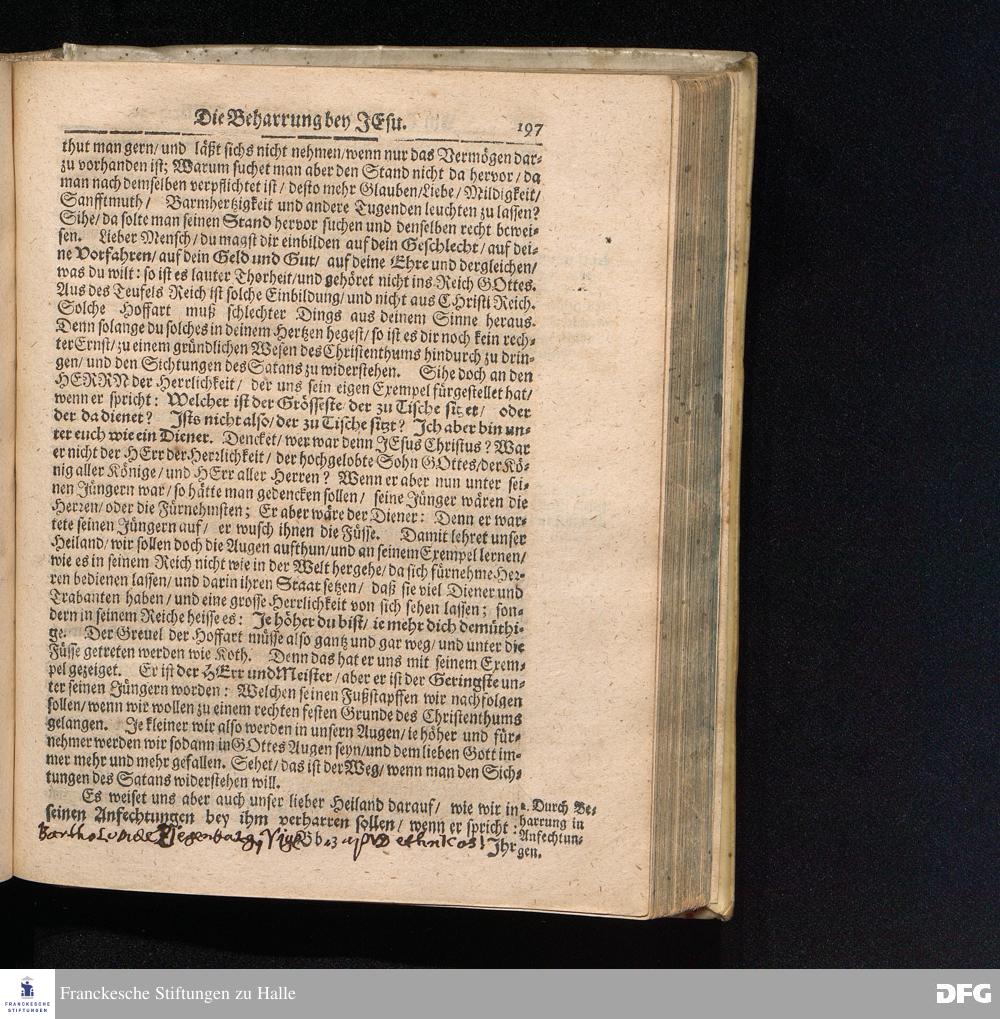 Die Beharrung bey JEsu. 197
thut man gern/ und läßt sichs nicht nehmen/ wenn nur das Vermögen dar-
zu vorhanden ist; Warum suchet man aber den Stand nicht da hervor/ da
man nach demselben verpflichtet ist/ desto mehr Glauben/ Liebe/ Mildigkeit/
Sanfftmuth/ Barmhertzigkeit und andere Tugenden leuchten zu lassen?
Sihe/ da solte man seinen Stand hervor suchen und denselben recht bewei-
sen. Lieber Mensch/ du magst dir einbilden auf dein Geschlecht/ auf dei-
ne Vorfahren/ auf dein Geld und Gut/ auf deine Ehre und dergleichen/
was du wilt: so ist es lauter Thorheit/ und gehöret nicht ins Reich GOttes.
Aus des Teufels Reich ist solche Einbildung/ und nicht aus CHristi Reich.
Solche Hoffart muß schlechter Dings aus deinem Sinne heraus.
Denn solange du solches in deinem Hertzen hegest/ so ist es dir noch kein rech-
ter Ernst/ zu einem gründlichen Wesen des Christenthums hindurch zu drin-
gen/ und den Sichtungen des Satans zu widerstehen. Sihe doch an den
HERRN der Herrlichkeit/ der uns sein eigen Exempel fürgestellet hat/
wenn er spricht: Welcher ist der Grösseste der zu Tische sitzet/ oder
der da dienet? Ists nicht also/ der zu Tische sitzt? Ich aber bin un-
ter euch wie ein Diener. Dencket/ wer war denn JEsus Christus? War
er nicht der HErr der Herzlichkeit/ der hochgelobte Sohn GOttes/ der Kö-
nig aller Könige/ und HErr aller Herren? Wenn er aber nun unter sei-
nen Jüngern war/ so hätte man gedencken sollen/ seine Jünger wären die
Herzen/ oder die Fürnehmsten; Er aber wäre der Diener: Denn er war-
tete seinen Jüngern auf/ er wusch ihnen die Füsse. Damit lehret unser
Heiland/ wir sollen doch die Augen aufthun/ und an seinem Exempel lernen/
wie es in seinem Reich nicht wie in der Welt hergehe/ da sich fürnehme Her-
ren bedienen lassen/ und darin ihren Staat setzen/ daß sie viel Diener und
Trabanten haben/ und eine grosse Herrlichkeit von sich sehen lassen; son-
dern in seinem Reiche heisse es: Je höher du bist/ ie mehr dich demüthi-
ge. Der Greuel der Hoffart müsse also gantz und gar weg/ und unter die
Füsse getreten werden wie Koth. Denn das hat er uns mit seinem Exem-
pel gezeiget. Er ist der HErr und Meister/ aber er ist der Geringste un-
ter seinen Jüngern worden: Welchen seinen Fußstapffen wir nachfolgen
sollen/ wenn wir wollen zu einem rechten festen Grunde des Christenthums
gelangen. Je kleiner wir also werden in unsern Augen/ ie höher und für-
nehmer werden wir sodann in GOttes Augen seyn/ und dem lieben Gott im-
mer mehr und mehr gefallen. Sehet/ das ist der Weg/ wenn man den Sich-
tungen des Satans widerstehen will.
Es weiset uns aber auch unser lieber Heiland darauf/ wie wir in
seinen Anfechtungen bey ihm verharren sollen/ wenn er spricht:
Ihr
2. Durch Be-
harrung in
Anfechtun-
gen.
FRANCKESCHE
STIFTUNGEN
Franckesche Stiftungen zu Halle
DFG